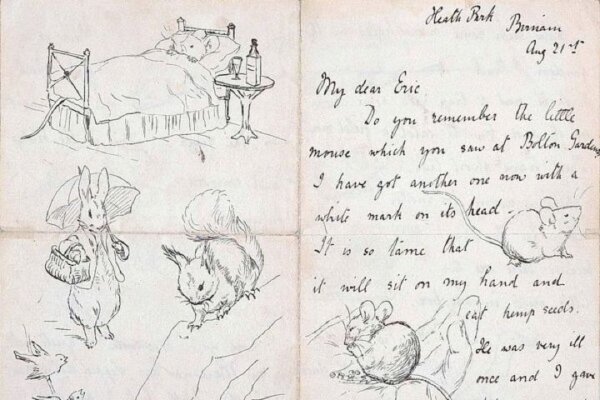 Heath Park
Birnam
Aug 21st
My dear Eric
Do you remember the little
mouse which you saw at Bolton Gardens
I have got another one now with a
white mark on its head.
It is so tame that
it will sit on my hand and
eat hemp seeds.
He was very ill
once and I gave